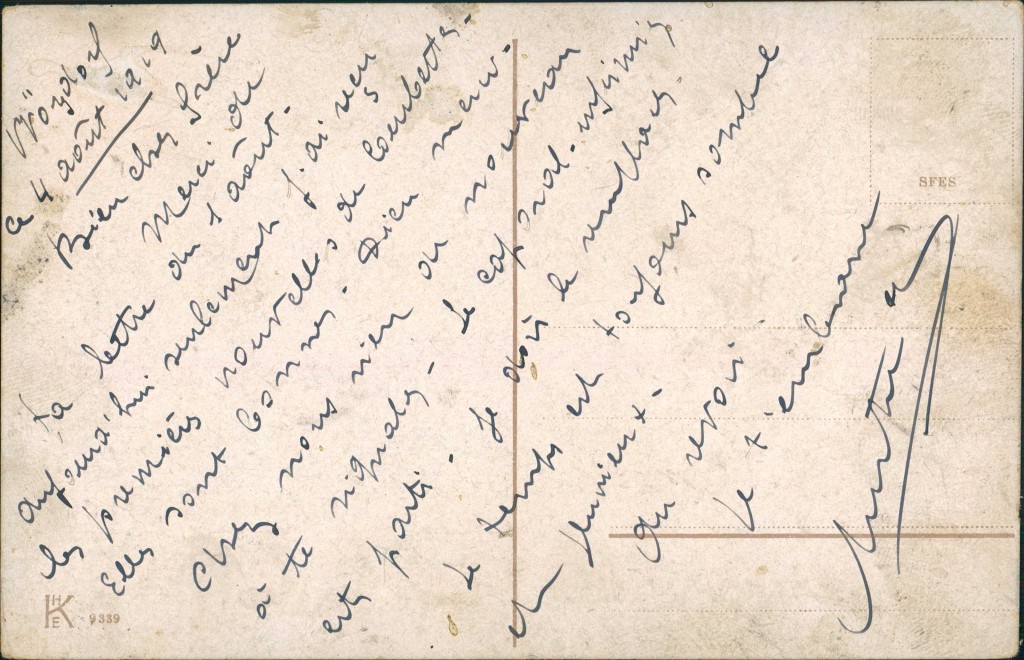 Wözdorf
ce 4 août 1919
Bien cher frère
Merci de
ta lettre du 1 août.
aujourd'hui seulement j'ai reçu
les premières nouvelles de
Elles sont bonnes. Rien
chez nous rien de nouveau
à te signaler. Le caporal-infirmier
est parti. Je dois le remplacer.
Le temps est toujours sombre
et
au revoir
Je t'embrasse
SFES
HKE
9339